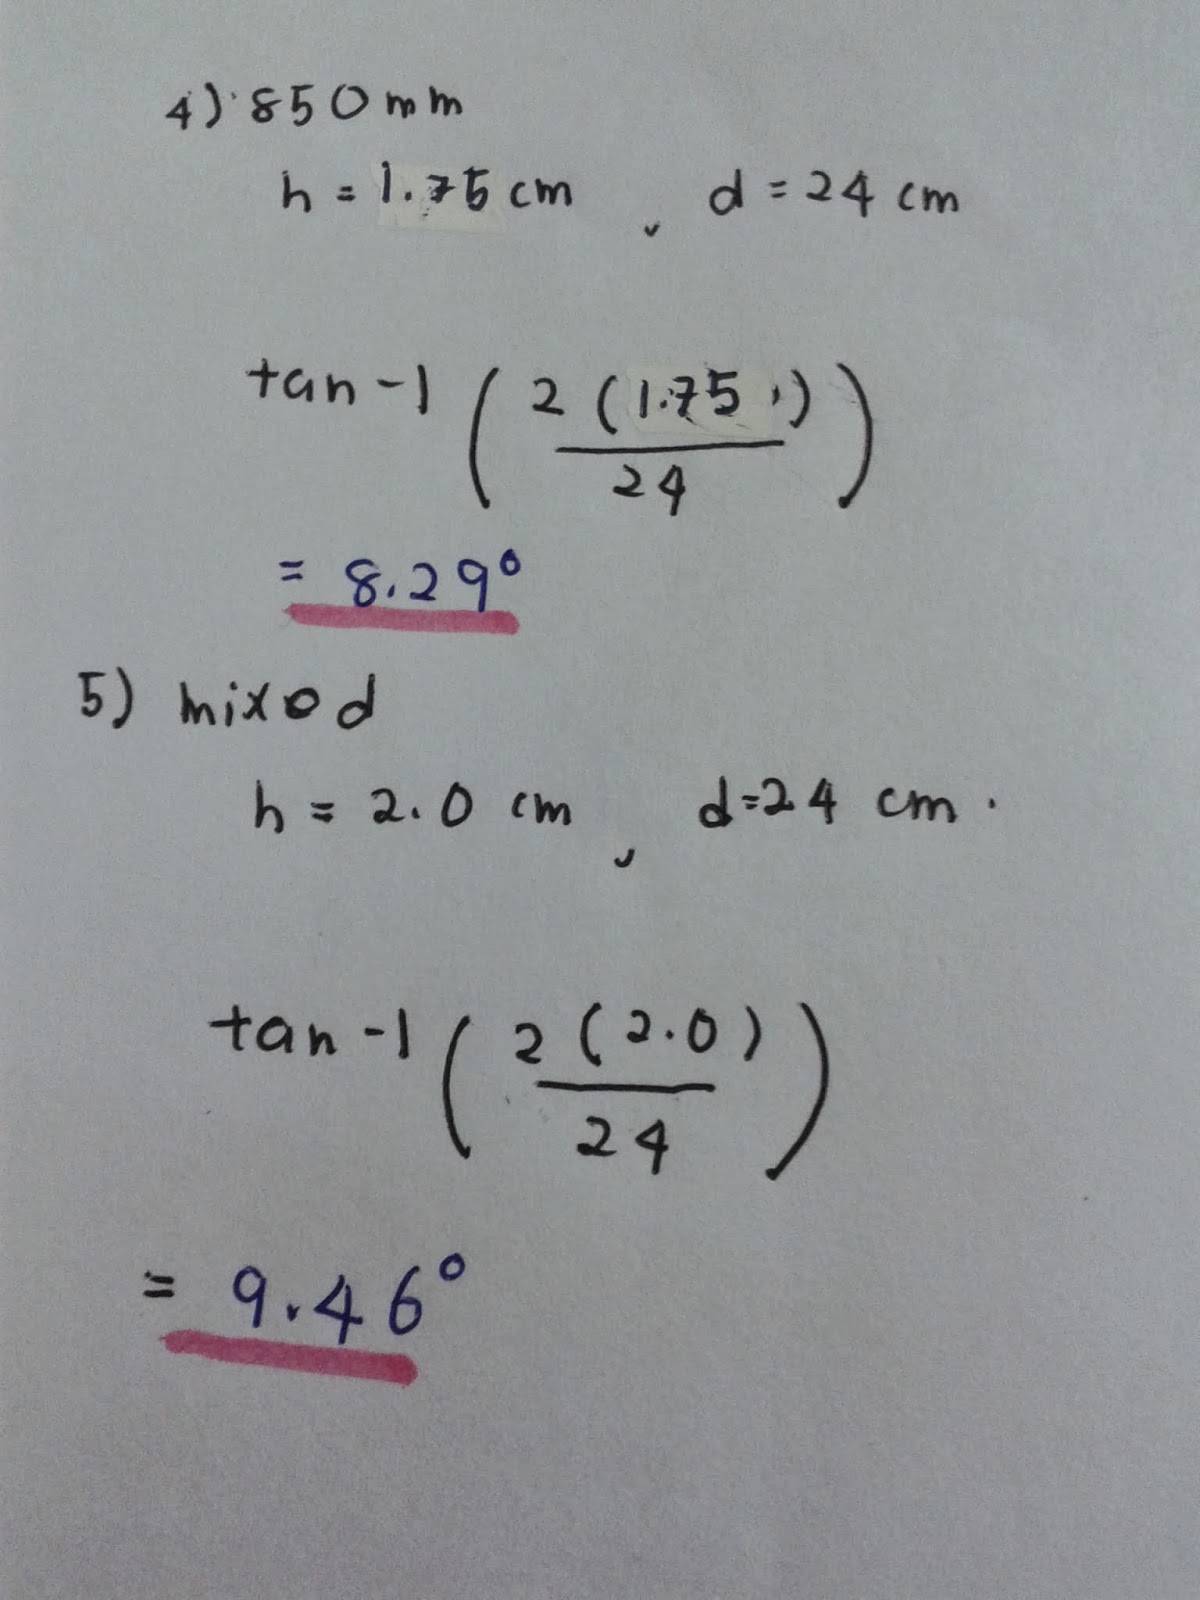 4) 850 mm
h = 1.75 cm , d = 24 cm
tan -1 ( 2 ( 1.75 ) / 24 )
= 8.29°
5) mixed
h = 2.0 cm , d = 24 cm .
tan -1 ( 2 ( 2.0 ) / 24 )
= 9.46°